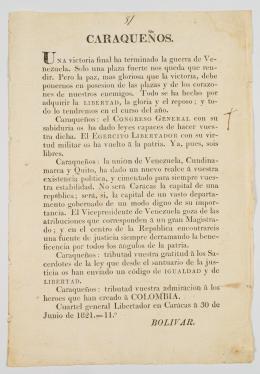 CARAQUEÑOS.
UNA victoria final ha terminado la guerra de Ve-
nezuela. Solo una plaza fuerte nos queda que ren-
dir. Pero la paz, mas gloriosa que la victoria, debe
ponernos en posesion de las plazas y de los corazo-
nes de nuestros enemigos. Todo se ha hecho por
adquirir la LIBERTAD, la gloria y el reposo; y to-
do lo tendremos en el curso del año.
Caraqueños: el CONGRESO GENERAL con su
sabiduria os ha dado leyes capaces de hacer vues-
tra dicha. El EGERCITO LIBERTADOR con su vir-
tud militar os ha vuelto á la patria. Ya, pues, sois
libres.
Caraqueños: la union de Venezuela, Cundina-
marca y Quito, ha dado un nuevo realce á vuestra
existencia politica, y cimentado para siempre vues-
tra estabilidad. No será Caracas la capital de una
republica; será, sí, la capital de un vasto departa-
mento gobernado de un modo digno de su impor-
tancia. El Vicepresidente de Venezuela goza de las
atribuciones que corresponden á un gran Magistra-
do; y en el centro de la Republica encontrareis
una fuente de justicia siempre derramando la bene-
ficencia por todos los angulos de la patria.
Caraqueños: tributad vuestra gratitud á los Sa-
cerdotes de la ley que desde el santuario de la jus-
ticia os han enviado un código de IGUALDAD y de
LIBERTAD.
Caraqueños: tributad vuestra admiracion á los
heroes que han creado á COLOMBIA.
Cuartel general Libertador en Caracas á 30 de
Junio de 1821.—11.º
BOLIVAR.